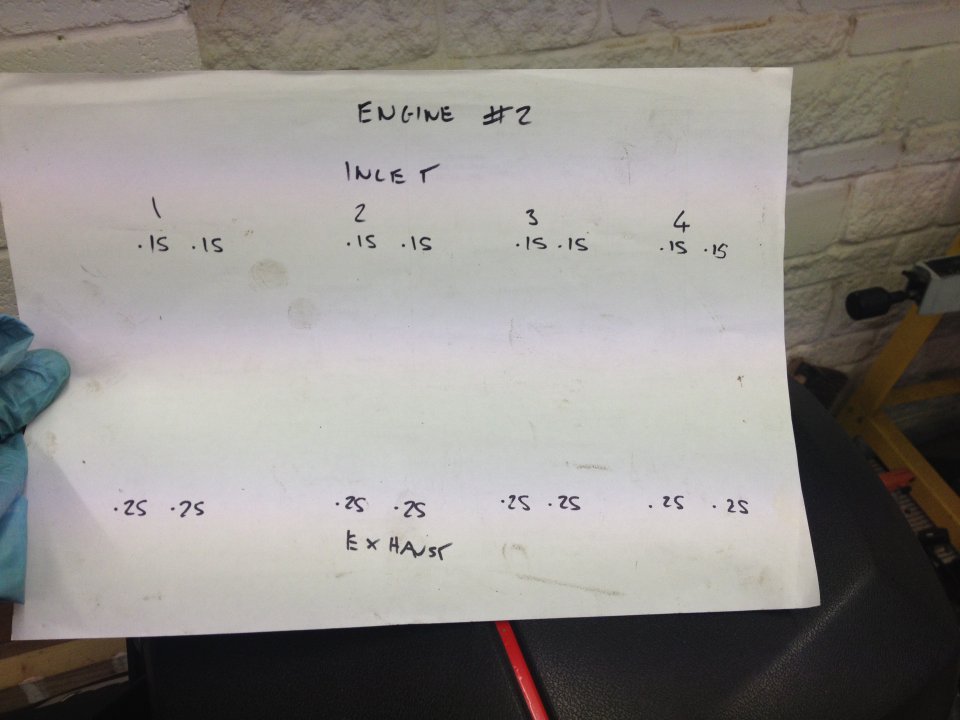 ENGINE #2
INLET
1 2 3 4
.15 .15 .15 .15 .15 .15 .15 .15
.25 .25 .25 .25 .25 .25 .25 .25
EXHAUST